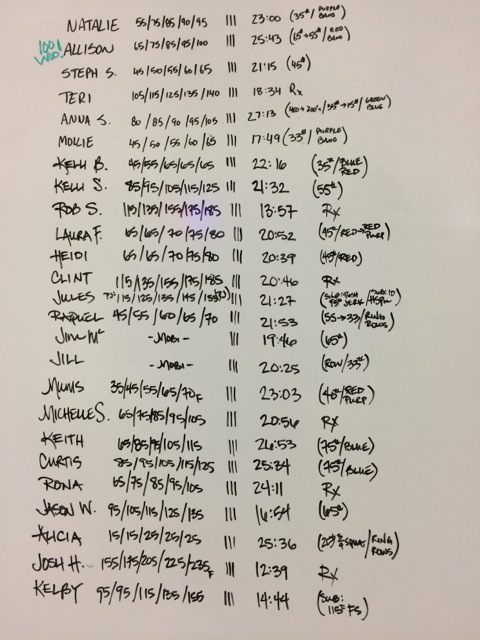 NATALIE 55/75/85/90/95 ||| 23:00 (35#/PURPLE BAND)
100! WOO! ALLISON 65/75/85/95/100 ||| 25:43 (65#→55#/RED BLUE)
STEPH S. 45/50/55/60/65 ||| 21:15 (45#)
TERI 105/115/125/135/140 ||| 18:34 Rx
ANNA S. 80/85/90/95/105 ||| 27:13 (400→200's/35#→15#/GREEN BLUE)
MOLLIE 45/50/55/60/65 ||| 17:49 (33#/PURPLE BAND)
KELLI B. 45/55/65/65/65 ||| 22:16 (35#/BLUE RED)
KELLI S. 85/95/105/115/125 ||| 21:32 (55#)
ROB S. 115/135/155/175/185 ||| 13:57 Rx
LAURA F. 65/65/70/75/80 ||| 20:52 (45#/RED→RED PURP)
HEIDI 65/65/70/75/80 ||| 20:39 (45#/RED)
CLINT 115/135/155/175/185 ||| 20:46 Rx
JULES 115/125/135/145/155 ||| 21:27 (SUB: PUSH JERK/
RAQUEL 45/55/60/65/70 ||| 21:53 (55→33/RING ROWS)
JIM Mc - MOBI - ||| 19:46 (65#)
JILL - MOBI - ||| 20:25 (ROW/33#)
MIMS 35/45/55/65/70F ||| 23:03 (40#/RED PURP)
MICHELLE S. 65/75/85/95/105 ||| 20:56 Rx
KEITH 65/85/95/105/115 ||| 26:53 (75#/BLUE)
CURTIS 85/95/105/115/125 ||| 25:34 (75#/BLUE)
RONA 65/75/85/95/105 ||| 24:11 Rx
JASON W. 95/105/115/125/135 ||| 16:54 (65#)
ALICIA 15/15/25/25/25 ||| 25:36 (25# SQUAT/RING ROWS)
JOSH H. 155/175/205/225/235F ||| 12:39 Rx
KELBY 95/95/115/135/155 ||| 14:44 (SUB: 115# FS)